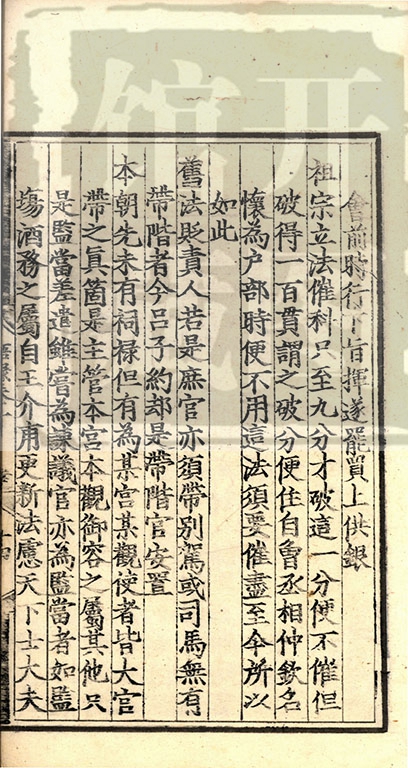 會前時行下旨揮遂罷買上供銀
祖宗立法催科只至九分才破這一分便不催但
破得一百貫謂之破分便住自曾丞相仲欽名
懷為户部時便不用這法須要催盡至今所以
如此
舊法貶責人若是庶官亦須帶别駕或司馬無有
帶階者今吕子約却是帶階官安置
本朝先未有祠禄但有為某宫某觀使者皆大官
帶之真箇是主管本宫本觀御容之屬其他只
是監當差遣雖嘗為諫議官亦為監當者如監
塲酒務之屬自王介甫更新法慮天下士大夫